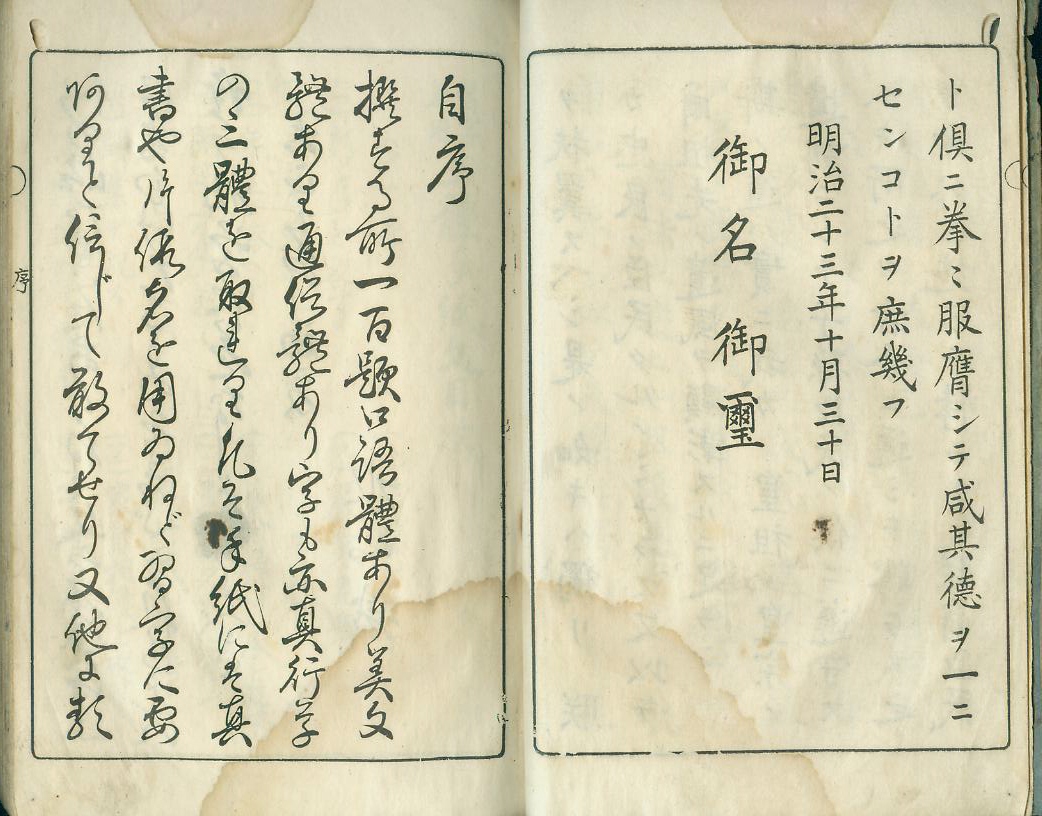 ト倶ニ拳〻服膺シテ咸其德ヲ一ニ
センコトヲ庶幾フ
明治二十三年十月三十日
御名御璽
自序
撰する所一百題口語體あり美文
體あり通俗體あり字も亦真行草
の三體を取れり凡そ手紙には真
書や片假名を用ゐねど習字に要
ありと信じて敢てせり又他に類
序